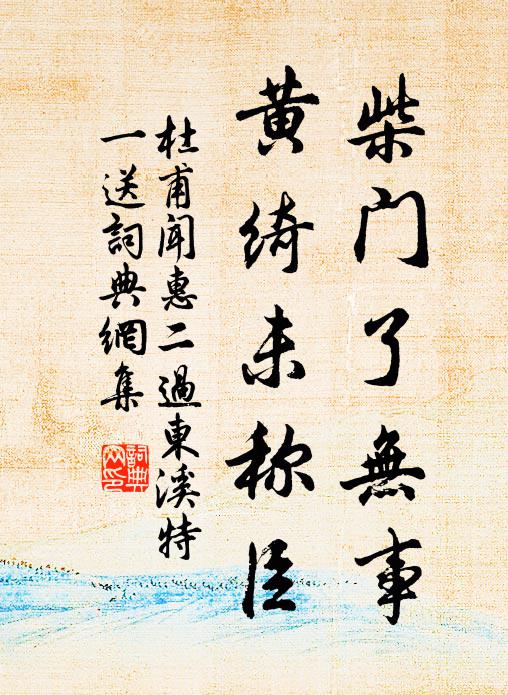 柴门了無事
黄绮未称臣
杜甫闻惠二過東溪特
一送詞典網集
詞典
网印